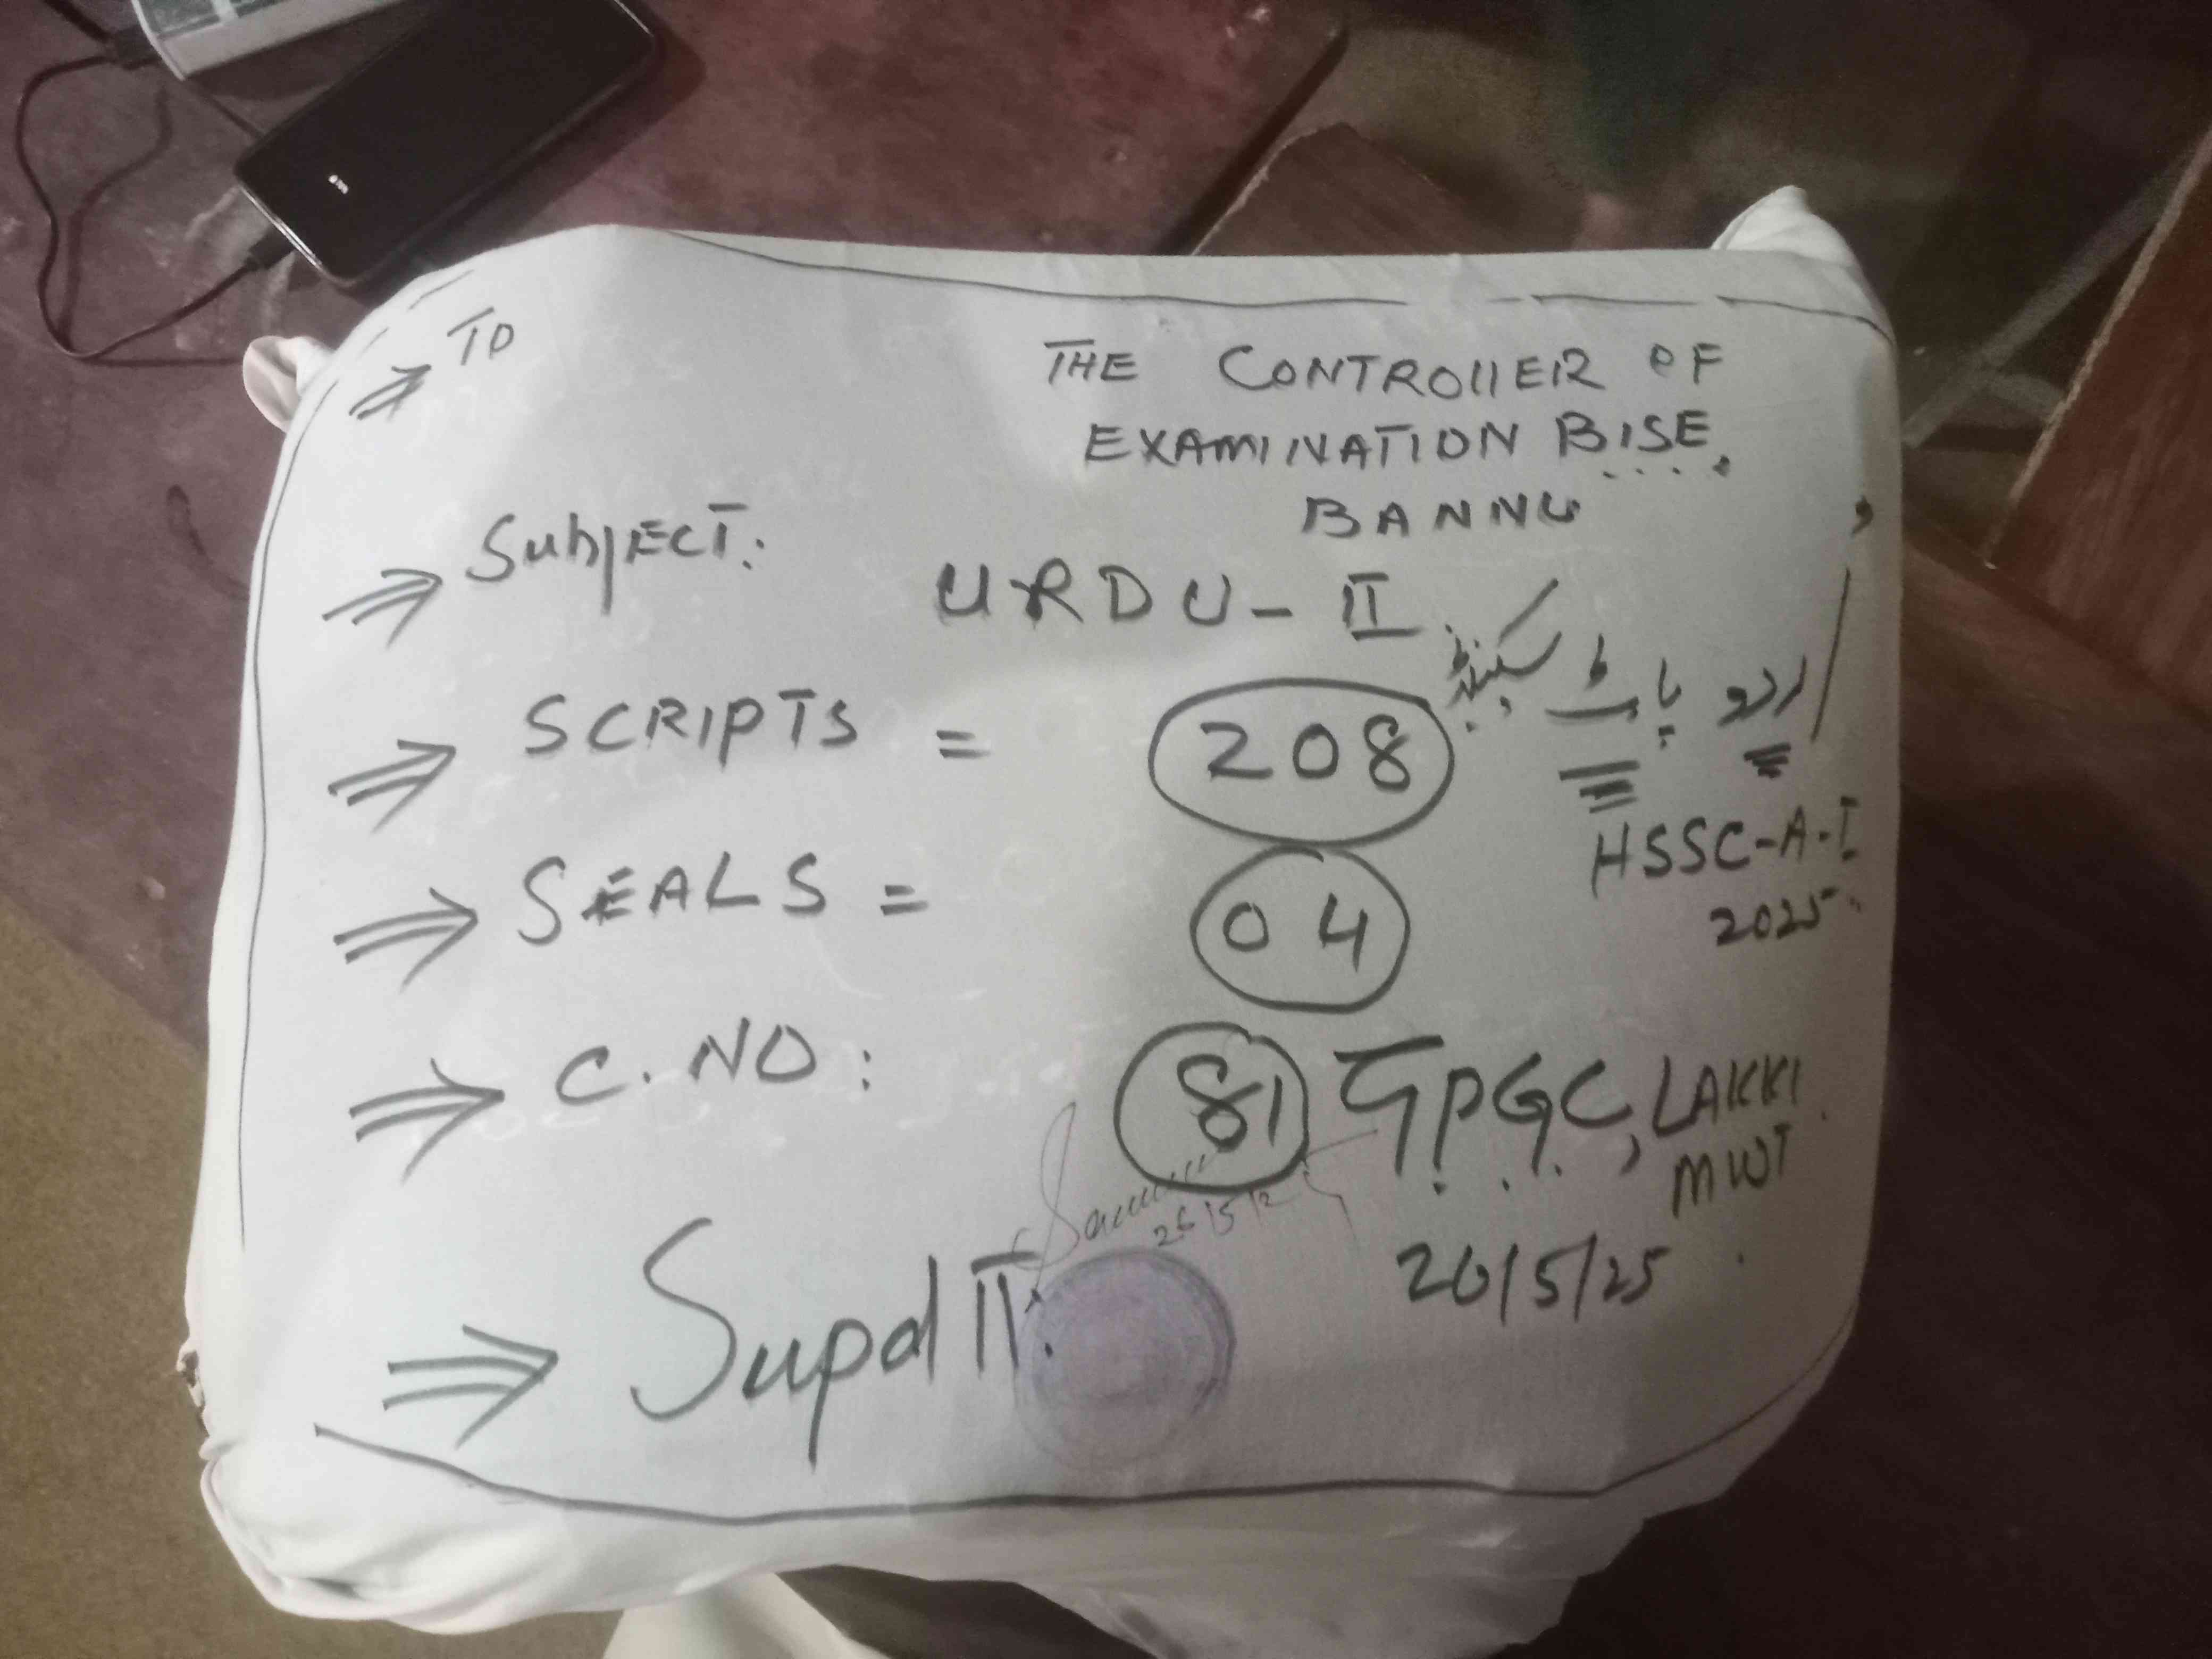 TO
THE CONTROllER OF
EXAMINATION BISE.
BANNU
SubjECT:
URDU - II
اردو پارٹ سیکنڈ
SCRIPTS = 208
HSSC-A-I
2025
SEALS = 04
C. NO: 81 G.P.G.C, LAKKI
MWT
26/5/25
Supdt II.